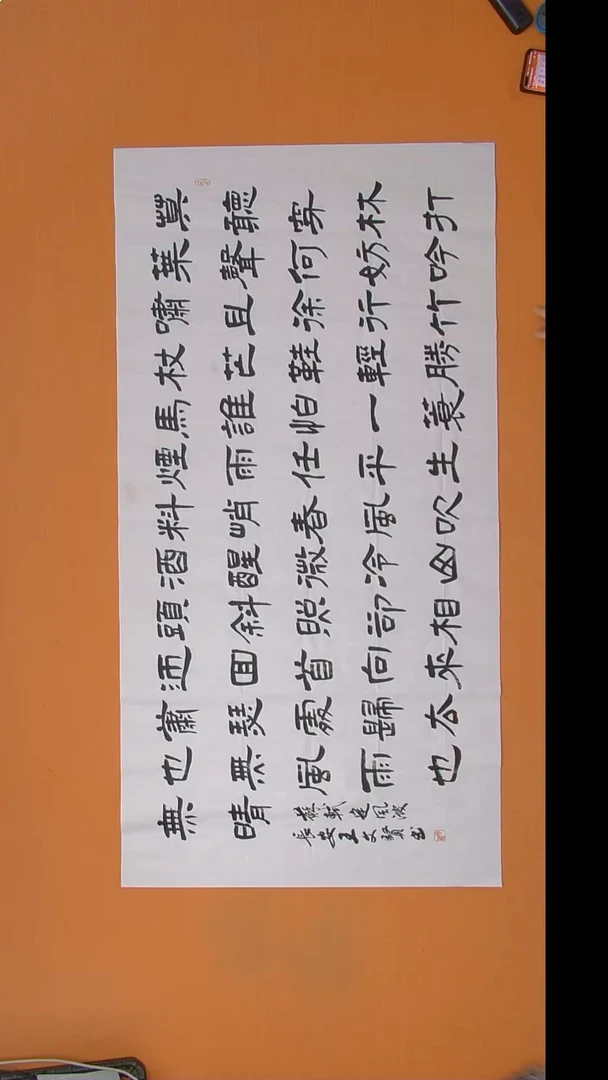 莫聽穿林打
葉聲何妨吟
嘯且徐行竹
杖芒鞋輕勝
馬誰怕一蓑
煙雨任平生
料峭春風吹
酒醒微冷山
頭斜照卻相
迎回首向來
蕭瑟處歸去
也無風雨也
無晴
蘇軾定風波
長安王文賢书